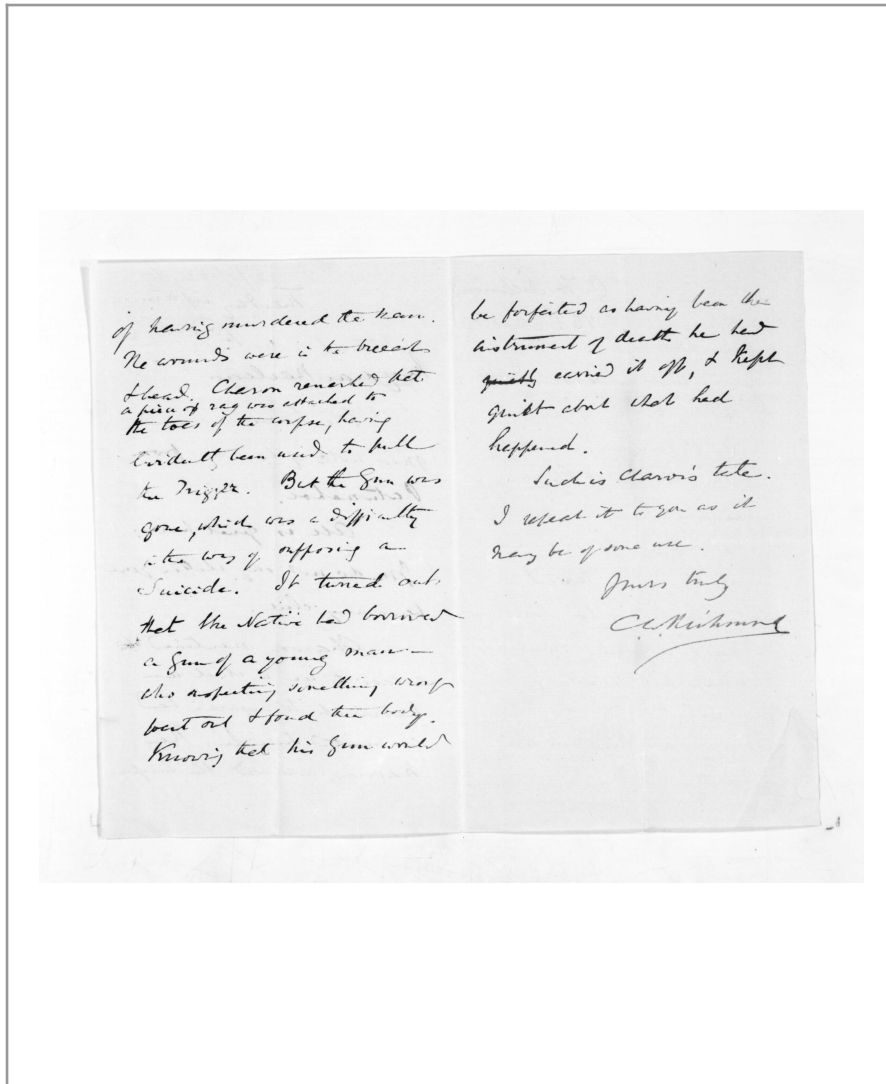 of having murdered the man.
The wounds were in the breast
& head. Charon remarked that
a piece of rag was attached to
the toes of the corpse, having
evidently been used to pull
the Trigger. But the Gun was
gone, which was a difficulty
in the way of supposing a
Suicide. It turned out
that the Native had borrowed
a Gun of a young man —
who suspecting something wrong
went out & found the body.
Knowing that his Gun would
be forfeited as having been the
instrument of death he had
quietly carried it off, & kept
quiet about what had
happened.
Such is Charon's tale.
I repeat it to you as it
may be of some use.
Yours truly
C W Richmond